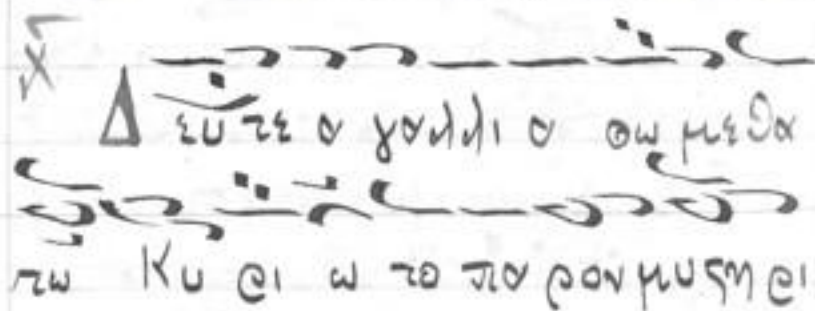 Δευ τε α γαλλι α σω μεθα
τω Κυ ρι ω το πα ρον μυϛη ρι